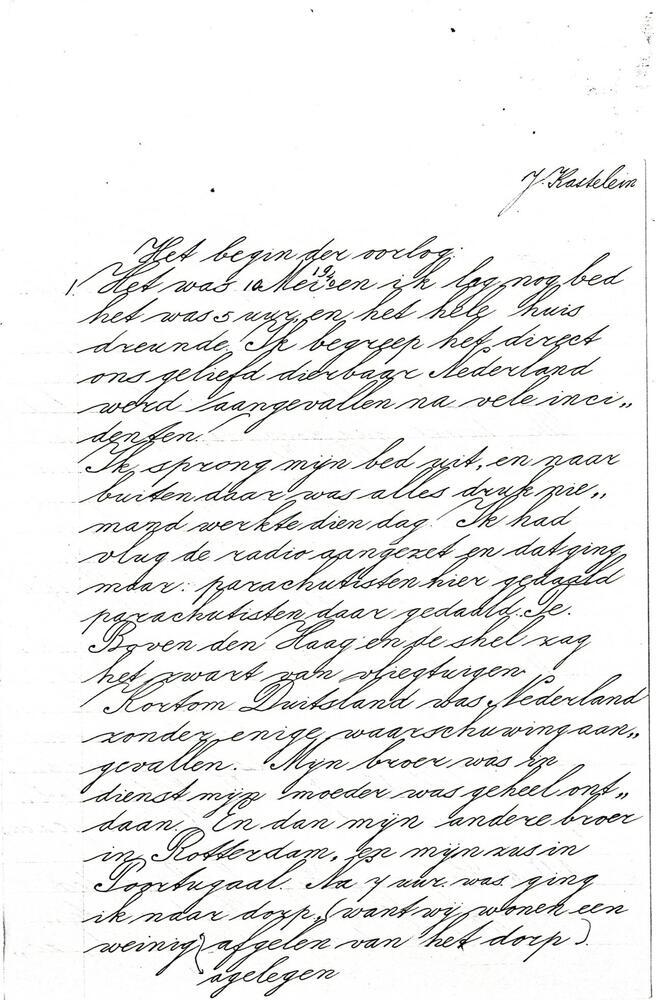 J. Kastelein
Het begin der oorlog.
1. Het was 10 Mei 1940 en ik lag nog bed
het was 5 uur, en het hele huis
dreunde. Ik begreep het direct
ons geliefd dierbaar Nederland
werd aangevallen na vele inci„
denten.
Ik sprong mijn bed uit, en naar
buiten daar was alles druk nie„
mand werkte dien dag. Ik had
vlug de radio aangezet en dat ging
maar: parachutisten hier gedaald
parachutisten daar gedaald.
Boven den Haag en de shel zag
het zwart van vliegtuigen
Kortom Duitsland was Nederland
zonder enige waarschuwing aan„
gevallen. Mijn broer was in
dienst mijn moeder was geheel ont„
daan. En dan mijn andere broer
in Rotterdam, en mijn zus in
Poortugaal. Na 7 uur was ging
ik naar dorp, (want wij wonen een
weinig afgelen van het dorp).
agelegen